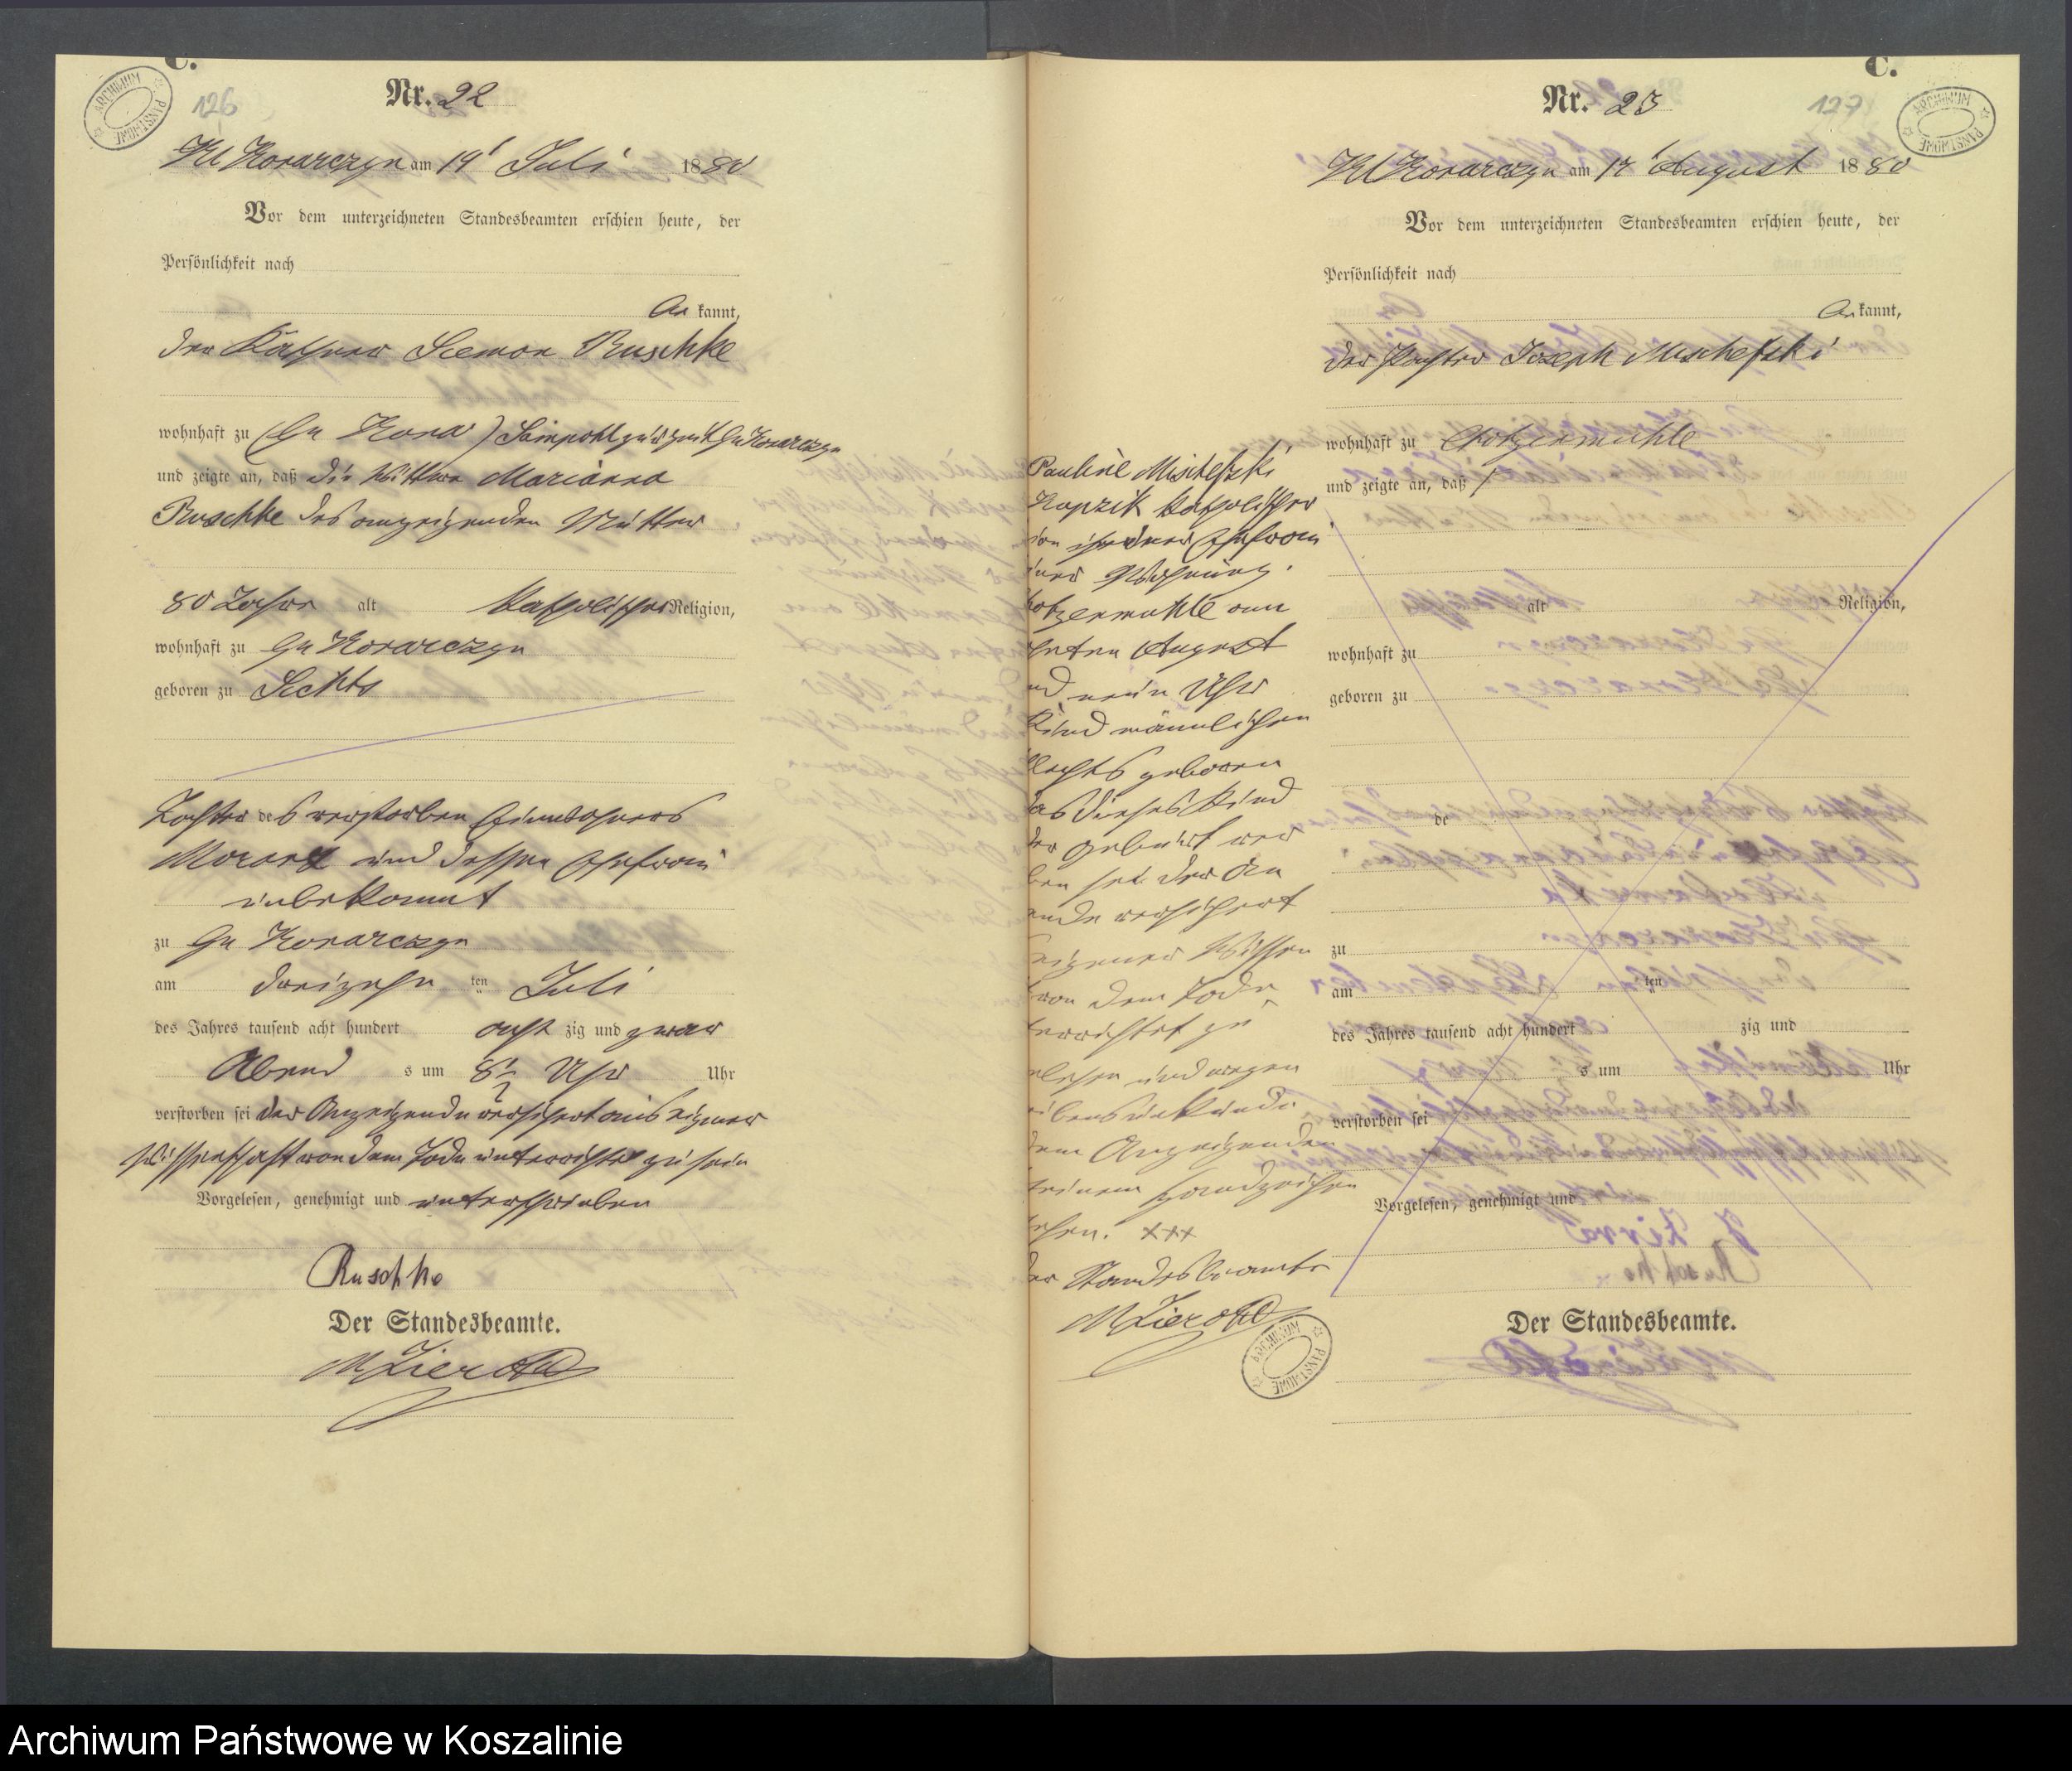 C.
ARCHIWUM PAŃSTWOWE
126
Nr. 22
Kl Konarczyn am 14' Juli 1880
Vor dem unterzeichneten Standesbeamten erschien heute, der
Persönlichkeit nach
kannt,
der Käthner Siemon Ruschke
wohnhaft zu (Gr Kona) Sampohl zur Zeit Gr Konarczyn
und zeigte an, daß die Wittwe Marianna
Ruschke des anzeigenden Mutter
80 Jahre alt Katholischer Religion,
wohnhaft zu Gr Konarczyn
geboren zu
Tochter des verstorben Einwohners
und dessen Ehefrau
unbekannt
zu Gr Konarczyn
am dreizehn ten Juli
des Jahres tausend acht hundert acht zig und zwar
Abend s um 8½ Uhr Uhr
verstorben sei der Anzeigende versichert aus eigener
Wissenschaft von dem Tode unterrichtet zu sein
Vorgelesen, genehmigt und unterschrieben
Ruschke
Der Standesbeamte.
C.
ARCHIWUM PAŃSTWOWE
127
Nr. 23
Kl Konarczyn am August 1880
Vor dem unterzeichneten Standesbeamten erschien heute, der
Persönlichkeit nach
kannt,
der Pächter Joseph Mischefski
wohnhaft zu Chotzenmühle
und zeigte an, daß /
alt Religion,
wohnhaft zu
geboren zu
de
zu
am ten
des Jahres tausend acht hundert zig und
s um Uhr
verstorben sei
Vorgelesen, genehmigt und
Der Standesbeamte.
Pauline Mischefski
Kopzik Katholischer
Ehefrau
Wohnung.
otzenmuhle am
nten August
nd neun Uhr
Kind männlichen
lechts geboren
das dieses Kind
der Geburt ver
ben sei der An
ende versichert
eigener Wissen
von dem Tode
terrichtet zu
elesen und wegen
ibensunkunde
dem Anzeigenden
seinem Handzeichen
ehen. xxx
der Standesbeamte
ARCHIWUM PAŃSTWOWE
Archiwum Państwowe w Koszalinie